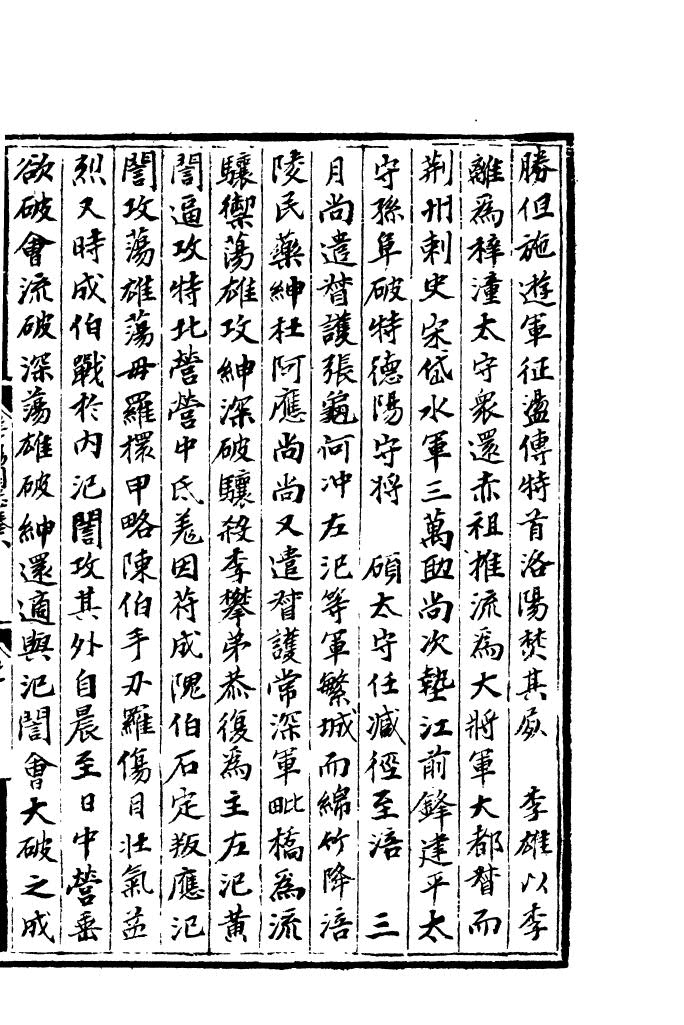 勝但施遊軍征盪傳特首洛陽焚其屍　李雄以李
離爲梓潼太守衆還赤祖推流爲大將軍大都督而
荆州刺史宋岱水軍三萬助尚次墊江前鋒建平太
守孫阜破特德陽守將　碩太守任臧徑至涪　三
月尚遣督護張龜何冲左氾等軍繁城而綿竹降涪
陵民藥紳杜阿應尚尚又遣督護常深軍毗橋爲流
驤禦蕩雄攻紳深破驤殺李攀弟恭復爲主左氾黃
誾逼攻特北營營中氐羗因苻成隗伯石定叛應氾
誾攻蕩雄蕩母羅擐甲略陳伯手刃羅傷目壯氣益
烈又時成伯戰於内氾誾攻其外自晨至日中營垂
欲破會流破深蕩雄破紳還適與氾誾會大破之成